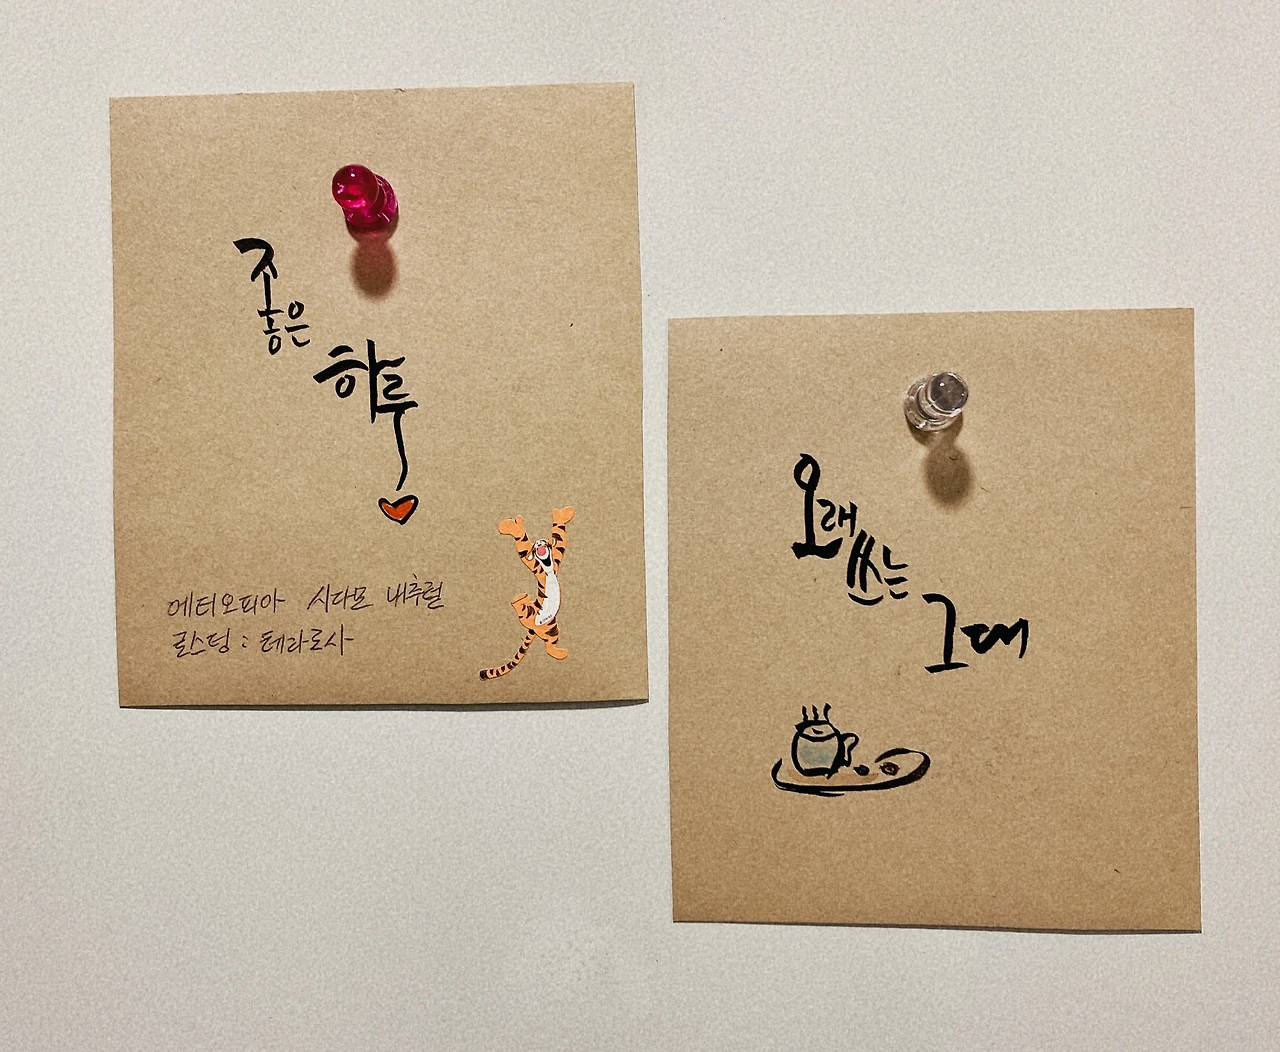 좋은
하루
에티오피아 시다모 내추럴
로스팅 : 테라로사
오래
쓰는
그대